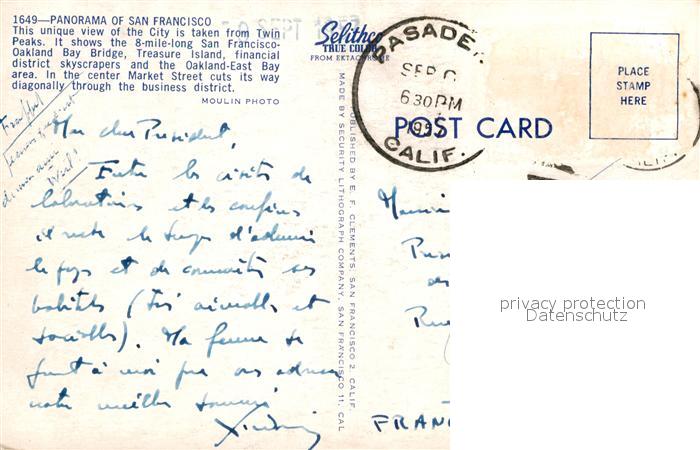 1649—PANORAMA OF SAN FRANCISCO
This unique view of the City is taken from Twin
Peaks. It shows the 8-mile-long San Francisco-
Oakland Bay Bridge, Treasure Island, financial
district skyscrapers and the Oakland-East Bay
area. In the center Market Street cuts its way
diagonally through the business district.
MOULIN PHOTO
Selithco
TRUE COLOR
FROM EKTACHROME
PASADE
SEP
6 30 PM
CALIF.
POST CARD
PLACE
STAMP
HERE
PUBLISHED BY E. F. CLEMENTS, SAN FRANCISCO 2, CALIF.
MADE BY SECURITY LITHOGRAPH COMPANY, SAN FRANCISCO 11, CAL
Mon cher Président,
Entre les visites de
laboratoires et les
il reste le temps d'admirer
le pays et de connaître ses
habitants (très aimables et
sociables). Ma femme se
joint à moi pour vous adresser
notre meilleur souvenir
FRAN
privacy protection
Datenschutz